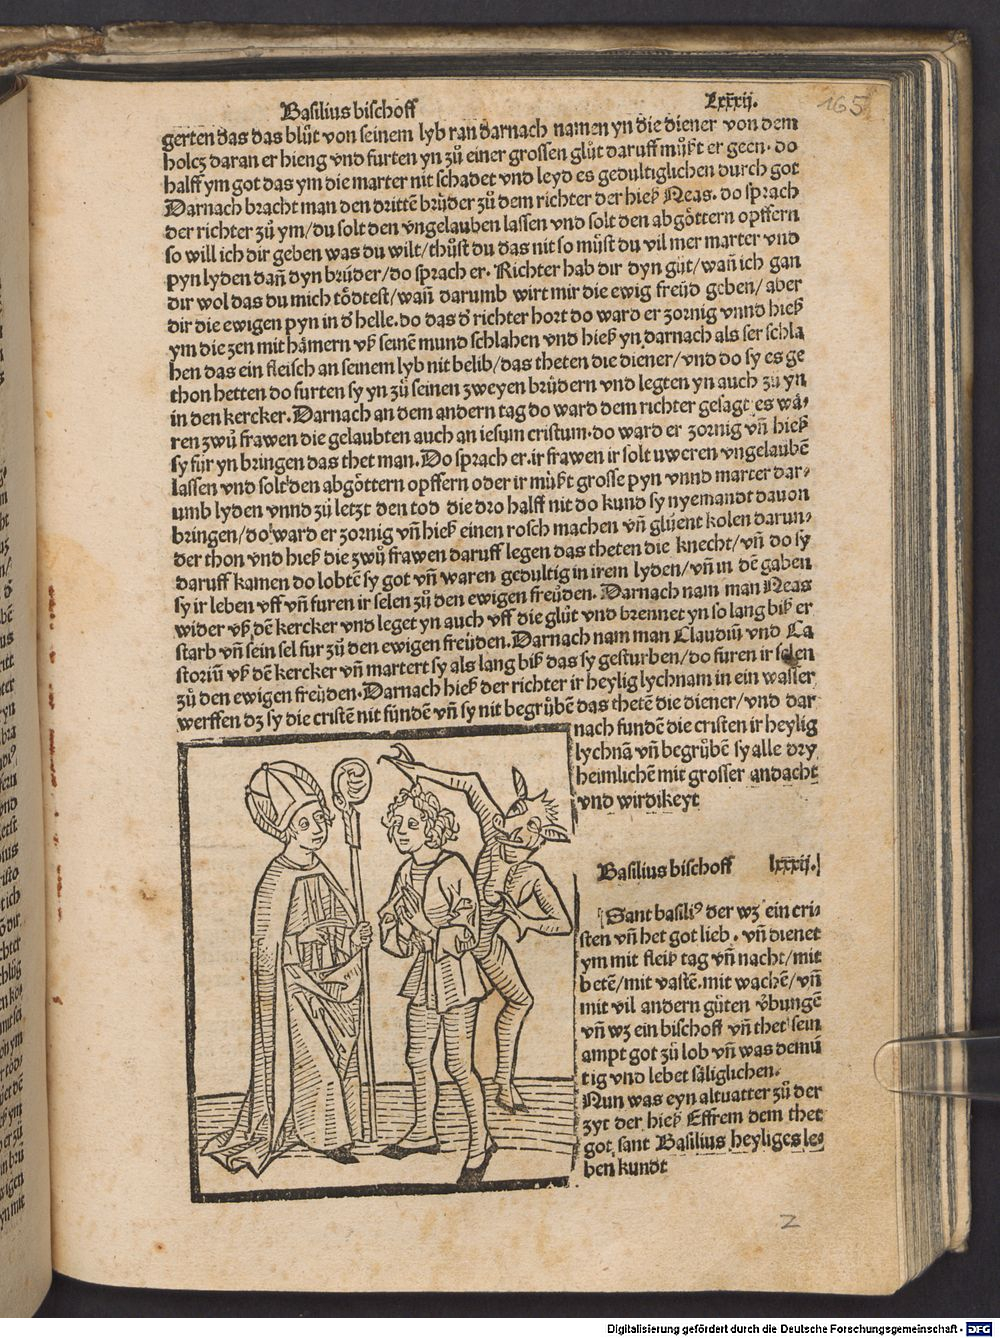 Basilius bischoff Lxxxij. 165
gerten das das blůt von seinem lyb ran darnach namen yn die diener von dem
holcz daran er hieng vnd furten yn zů einer grossen glůt daruff můßt er geen. do
halff ym got das ym die marter nit schadet vnd leyd es gedultiglichen durch got
Darnach bracht man den drittē brůder zů dem richter der hieß Neas. do sprach
der richter zů ym/du solt den vngelauben lassen vnd solt den abgöttern opffern
so will ich dir geben was du wilt/thůst du das nit so můst du vil mer marter vnd
pyn lyden dañ dyn brůder/do sprach er. Richter hab dir dyn gůt/wañ ich gan
dir wol das du mich tödtest/wañ darumb wirt mir die ewig freüd geben/ aber
dir die ewigen pyn in d̄ helle. do das d̄ richter hort do ward er zornig vnnd hieß
ym die zen mit hämern vß seinē mund schlahen vnd hieß yn darnach als ser schla
hen das ein fleisch an seinem lyb nit belib/das theten die diener/vnd do sy es ge
thon hetten do furten sy yn zů seinen zweyen brüdern vnd legten yn auch zů yn
in den kercker. Darnach an dem andern tag do ward dem richter gesagt es wä⸗
ren zwů frawen die gelaubten auch an iesum cristum. do ward er zornig vñ hieß
sy für yn bringen das thet man. Do sprach er. ir frawen ir solt uweren vngelaubē
lassen vnd solt den abgöttern opffern oder ir můßt grosse pyn vnnd marter dar⸗
umb lyden vnnd zů letzt den tod die dro halff nit do kund sy nyemandt dauon
bringen/do ward er zornig vñ hieß einen rosch machen vñ glüent kolen darun⸗
der thon vnd hieß die zwů frawen daruff legen das theten die knecht/vñ do sy
daruff kamen do lobtē sy got vñ waren gedultig in irem lyden/vñ in dē gaben
sy ir leben vff vñ furen ir selen zů den ewigen freüden. Darnach nam man Neas
wider vß dē kercker vnd leget yn auch vff die glůt vnd brennet yn so lang biß er
starb vñ sein sel fur zů den ewigen freüden. Darnach nam man Claudiū vnd Ca
storiū vß dē kercker vñ martert sy als lang biß das sy gesturben/do furen ir selen
zů den ewigen freüden. Darnach hieß der richter ir heylig lychnam in ein wasser
werffen dz sy die cristē nit fündē vñ sy nit begrübē das thetē die diener/vnd dar
nach fundē die cristen ir heylig
lychnā vñ begrůbē sy alle dry
heimlichē mit grosser andacht
vnd wirdikeyt
Basilius bischoff lxxxij.
Sant basiliꝰ der wz ein cri⸗
sten vñ het got lieb. vñ dienet
ym mit fleiß tag vñ nacht/mit
betē/mit vastē. mit wachē/vñ
mit vil andern gůten v̈bungē
vñ wz ein bischoff vñ thet sein
ampt got zů lob vñ was demů
tig vnd lebet säliglichen.
Nun was eyn altuatter zů der
zyt der hieß Effrem dem thet
got sant Basilius heyliges le⸗
ben kundt
z
Digitalisierung gefördert durch die Deutsche Forschungsgemeinschaft - DFG